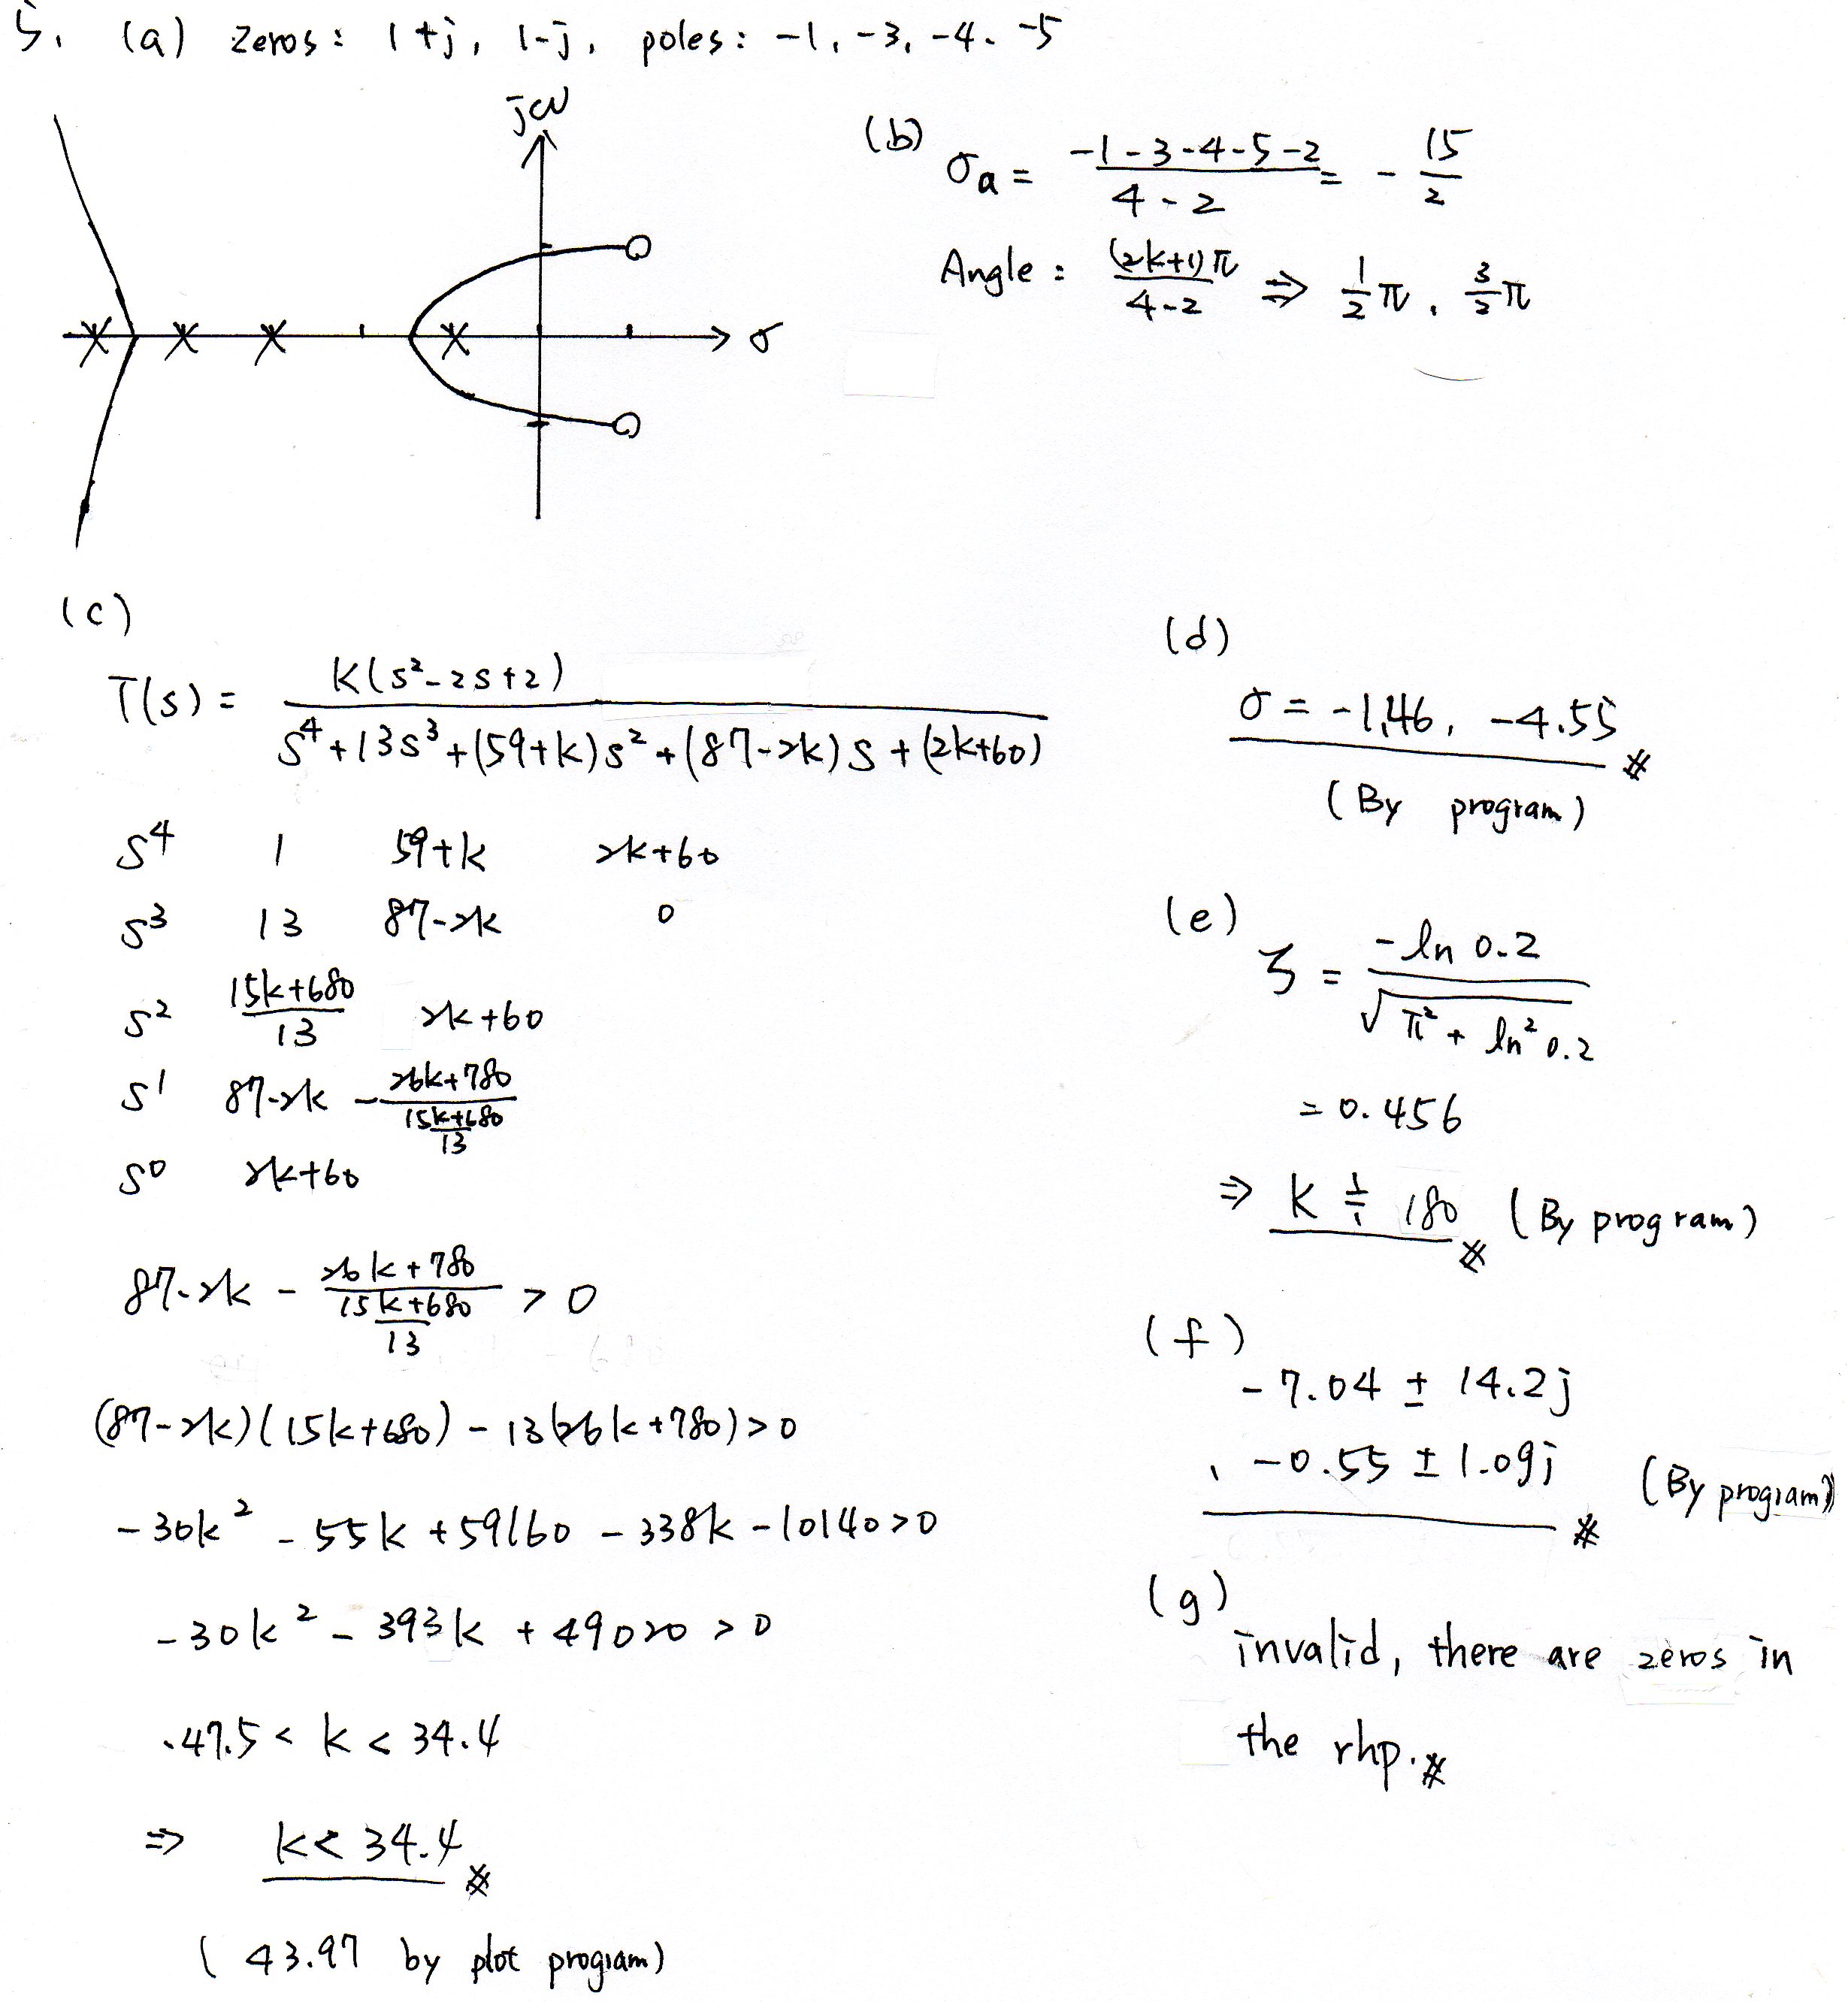 5. (a) zeros: 1+j, 1-j, poles: -1, -3, -4, -5
jω
σ
(b) σa = (-1-3-4-5-2)/(4-2) = -15/2
Angle: (2k+1)π/(4-2) ⇒ 1/2 π, 3/2 π
(c)
T(s) = K(s²-2s+2) / (s⁴+13s³+(59+k)s²+(87-2k)s+(2k+60))
s⁴ 1 59+k 2k+60
s³ 13 87-2k 0
s² (15k+680)/13 2k+60
s¹ 87-2k - (26k+780)/((15k+680)/13)
s⁰ 2k+60
87-2k - (26k+780)/((15k+680)/13) > 0
(87-2k)(15k+680) - 13(26k+780) > 0
-30k² - 55k + 59160 - 338k - 10140 > 0
-30k² - 393k + 49020 > 0
-47.5 < k < 34.4
⇒ k < 34.4 ※
(43.97 by plot program)
(d)
σ = -1.46, -4.55 ※
(By program)
(e) ζ = -ln 0.2 / √(π² + ln² 0.2)
= 0.456
⇒ K ≒ 180 ※ (By program)
(f)
-7.04 ± 14.2j
, -0.55 ± 1.09j ※ (By program)
(g)
invalid, there are zeros in
the rhp. ※